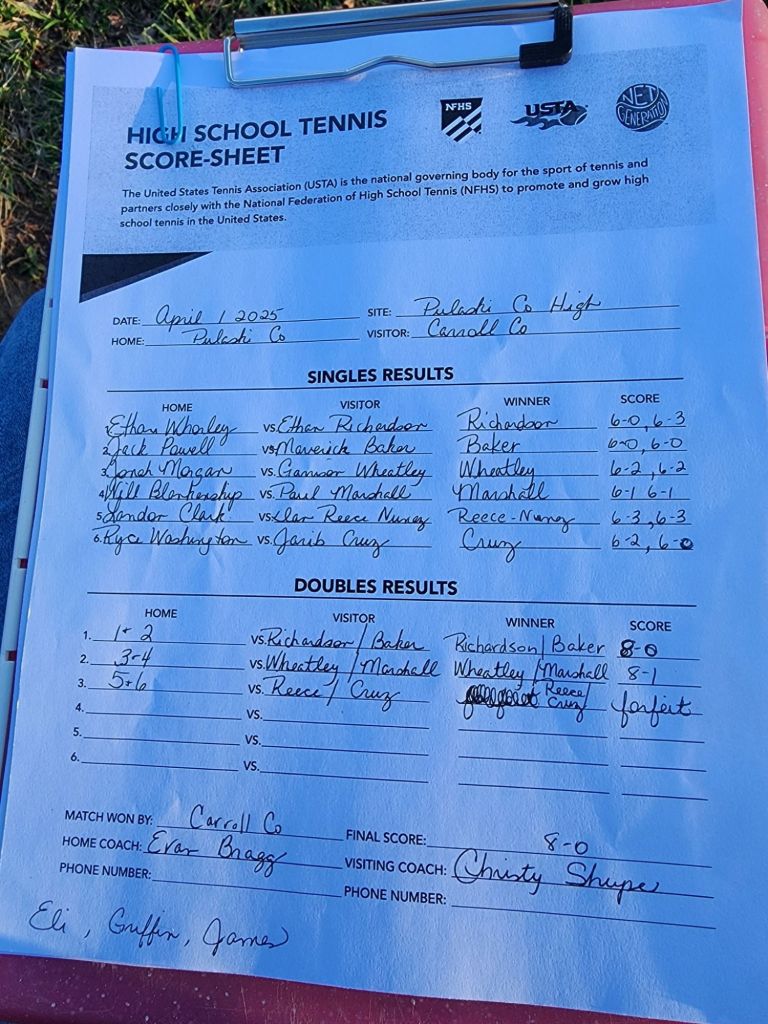 NFHS
USTA
NET GENERATION
HIGH SCHOOL TENNIS
SCORE-SHEET
The United States Tennis Association (USTA) is the national governing body for the sport of tennis and
partners closely with the National Federation of High School Tennis (NFHS) to promote and grow high
school tennis in the United States.
DATE: April 1 2025 SITE: Pulaski Co High
HOME: Pulaski Co VISITOR: Carroll Co
SINGLES RESULTS
HOME VISITOR WINNER SCORE
1. Ethan Whorley vs. Ethan Richardson Richardson 6-0, 6-3
2. Jack Powell vs. Maverick Baker Baker 6-0, 6-0
3. Jonah Morgan vs. Wheatley Wheatley 6-2, 6-2
4. Will Blankenship vs. Paul Marshall Marshall 6-1 6-1
5. Landon Clark vs. Reece Nunez Reece-Nunez 6-3, 6-3
6. Ryce Washington vs. Jarib Cruz Cruz 6-2, 6-0
DOUBLES RESULTS
HOME VISITOR WINNER SCORE
1. 1+2 vs. Richardson/Baker Richardson/Baker 8-0
2. 3-4 vs. Wheatley/Marshall Wheatley/Marshall 8-1
3. 5+6 vs. Reece/Cruz Reece/Cruz forfeit
4. vs.
5. vs.
6. vs.
MATCH WON BY: Carroll Co FINAL SCORE: 8-0
HOME COACH: Evan Bragg VISITING COACH: Christy Shupe
PHONE NUMBER: PHONE NUMBER:
Eli, Griffin, James